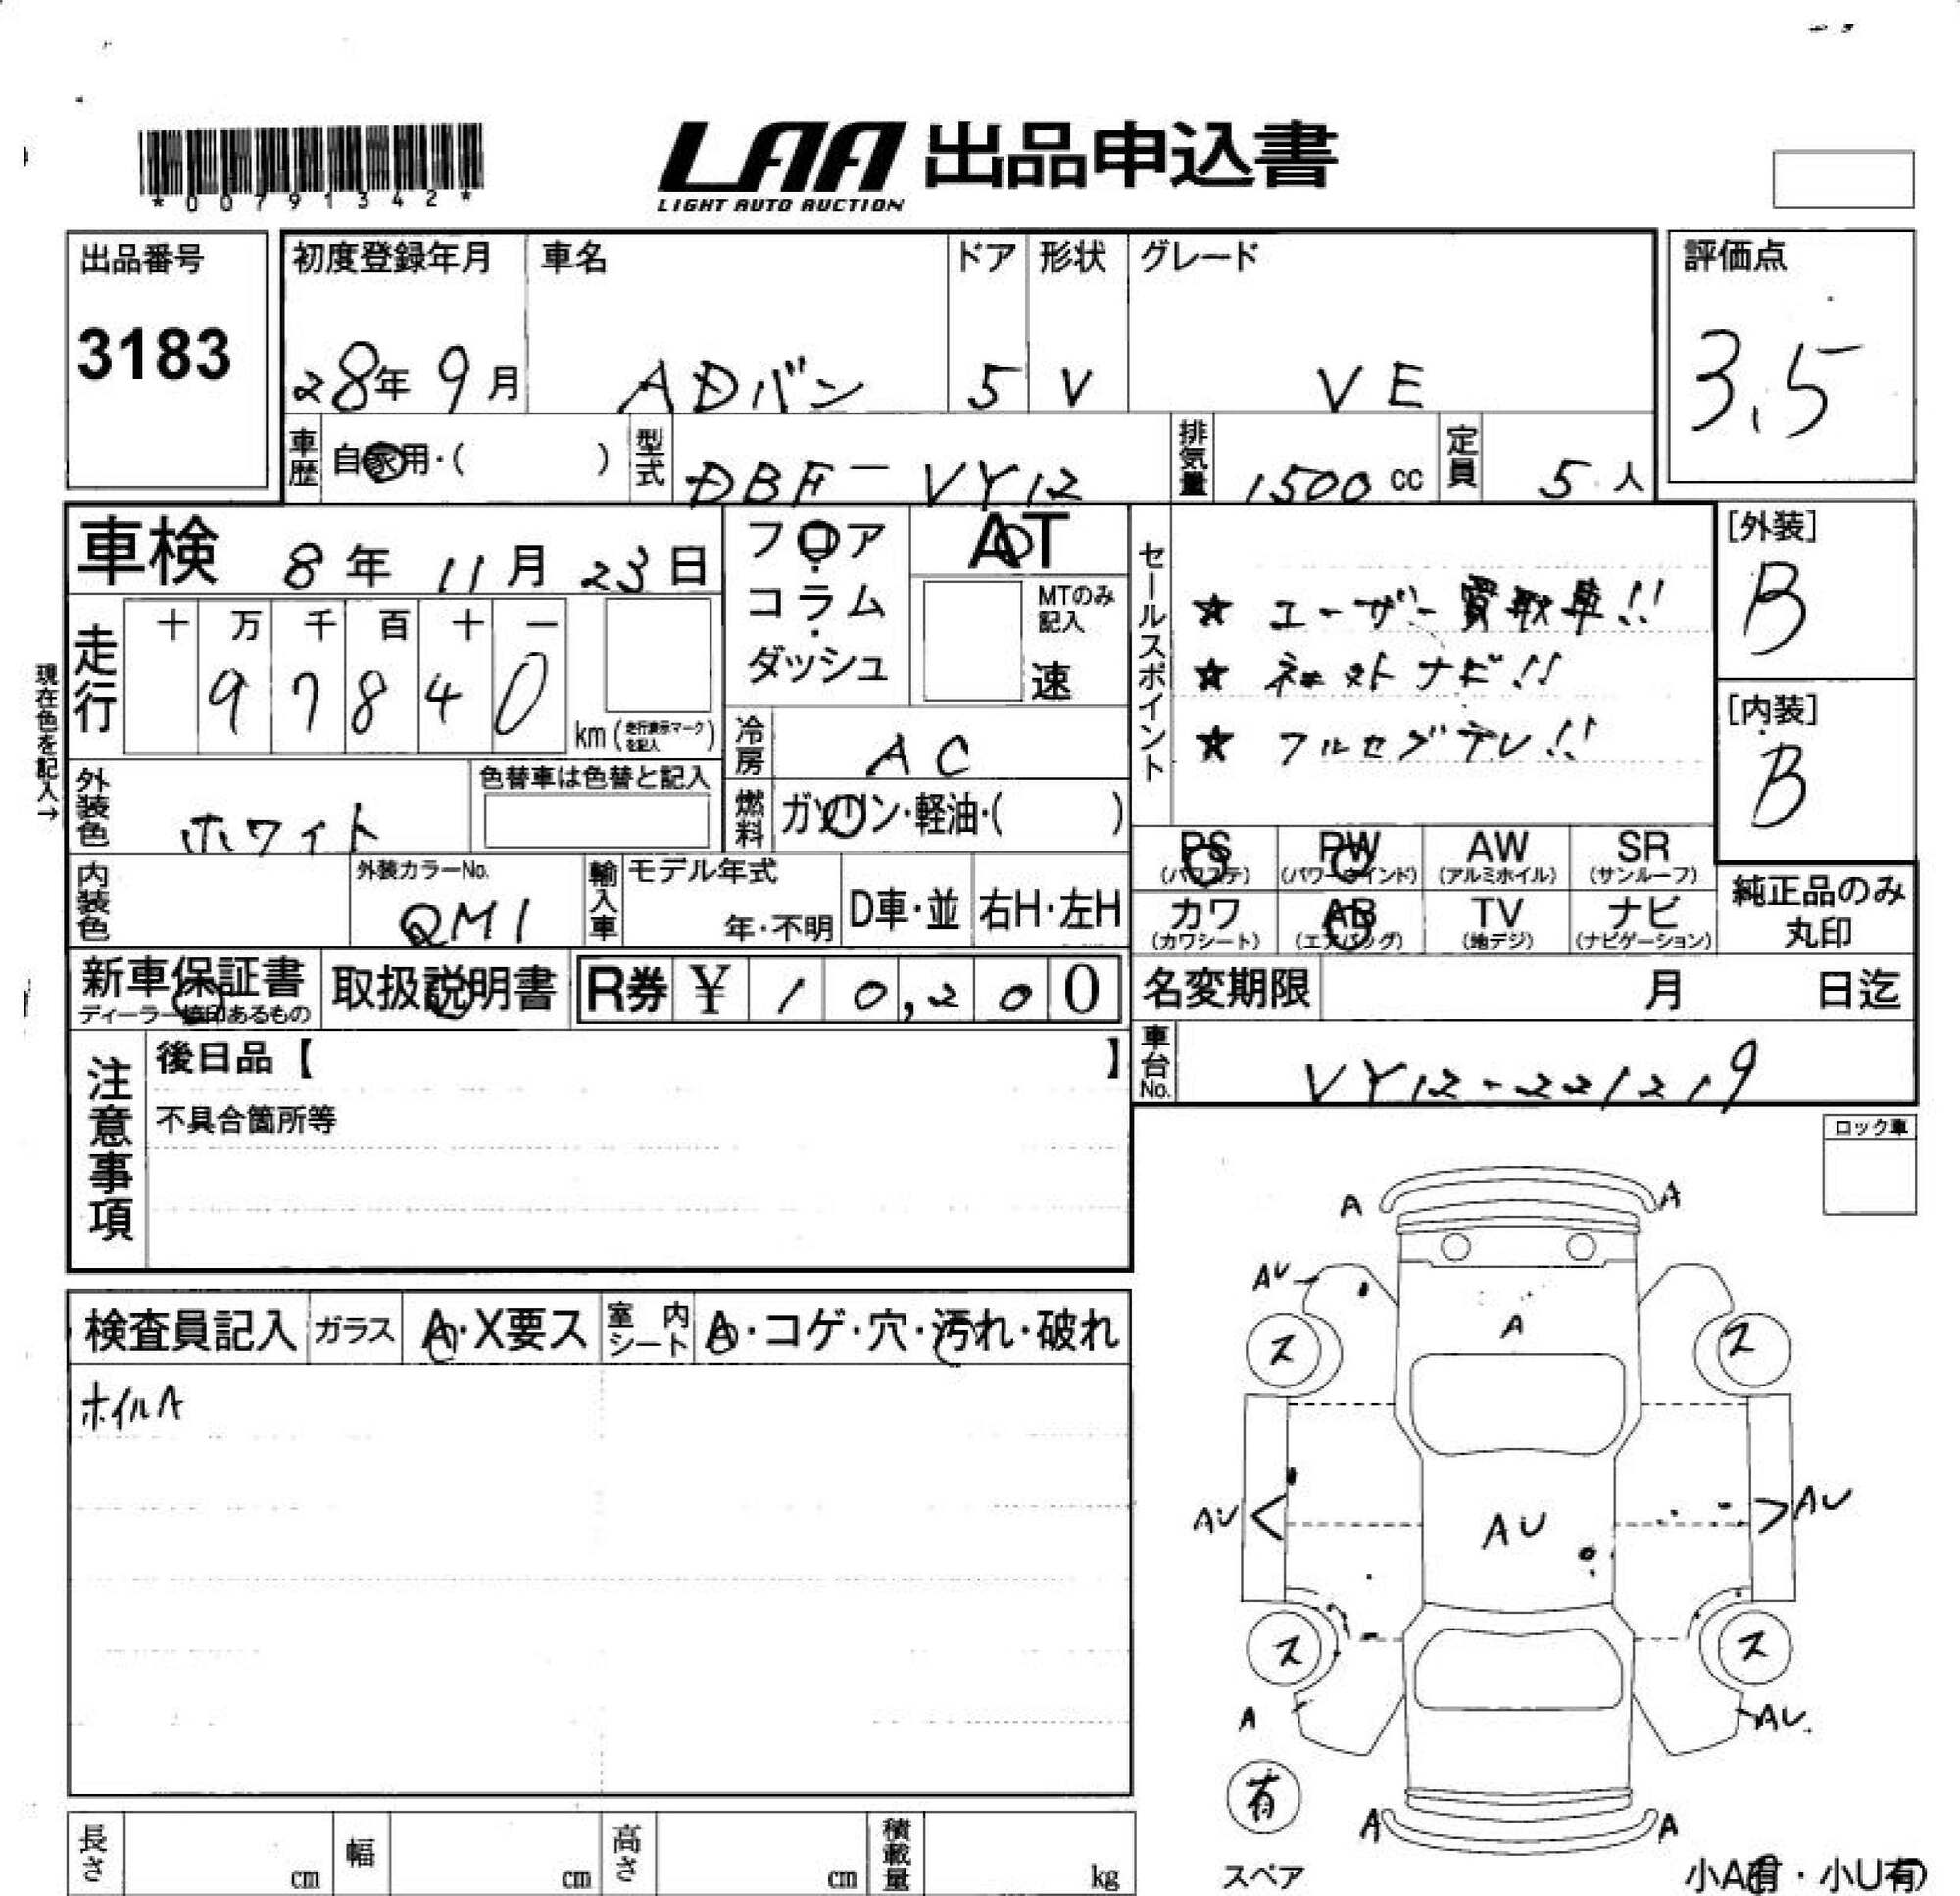 *00791342*
LAA 出品申込書
LIGHT AUTO AUCTION
出品番号
3183
初度登録年月 車名 ドア 形状 グレード
28年 9月 ADバン 5 V VE
評価点
3.5
車歴 自家用・( ) 型式 DBF-VY12 排気量 1500 cc 定員 5 人
車検 8年 11月 23日
フロア・コラム・ダッシュ
AT
MTのみ記入
速
セールスポイント
★ ユーザー買取車!!
★ ネットナビ!!
★ フルセグテレ!!
[外装]
B
[内装]
B
現在色を記入→
走行 十 万 千 百 十 一
97840
km (走行表示マークを記入)
冷房 AC
燃料 ガソリン・軽油・( )
外装色 ホワイト
色替車は色替と記入
内装色
外装カラーNo.
QM1
輸入車 モデル年式
年・不明
D車・並 右H・左H
PS (パワステ) PW (パワーウインド) AW (アルミホイル) SR (サンルーフ)
カワ (カワシート) AB (エアバッグ) TV (地デジ) ナビ (ナビゲーション)
純正品のみ丸印
新車保証書
ディーラー捺印あるもの
取扱説明書
R券 ¥ 10,200
名変期限 月 日迄
車台No. VY12-221219
注意事項
後日品【 】
不具合箇所等
ロック車
検査員記入 ガラス A・X要ス 室内シート A・コゲ・穴・汚れ・破れ
ホイルA
A A
AU
A
ス ス
AU AU AU
ス ス
A AU
有
A A
スペア
小A有・小U有
長さ cm 幅 cm 高さ cm 積載量 kg